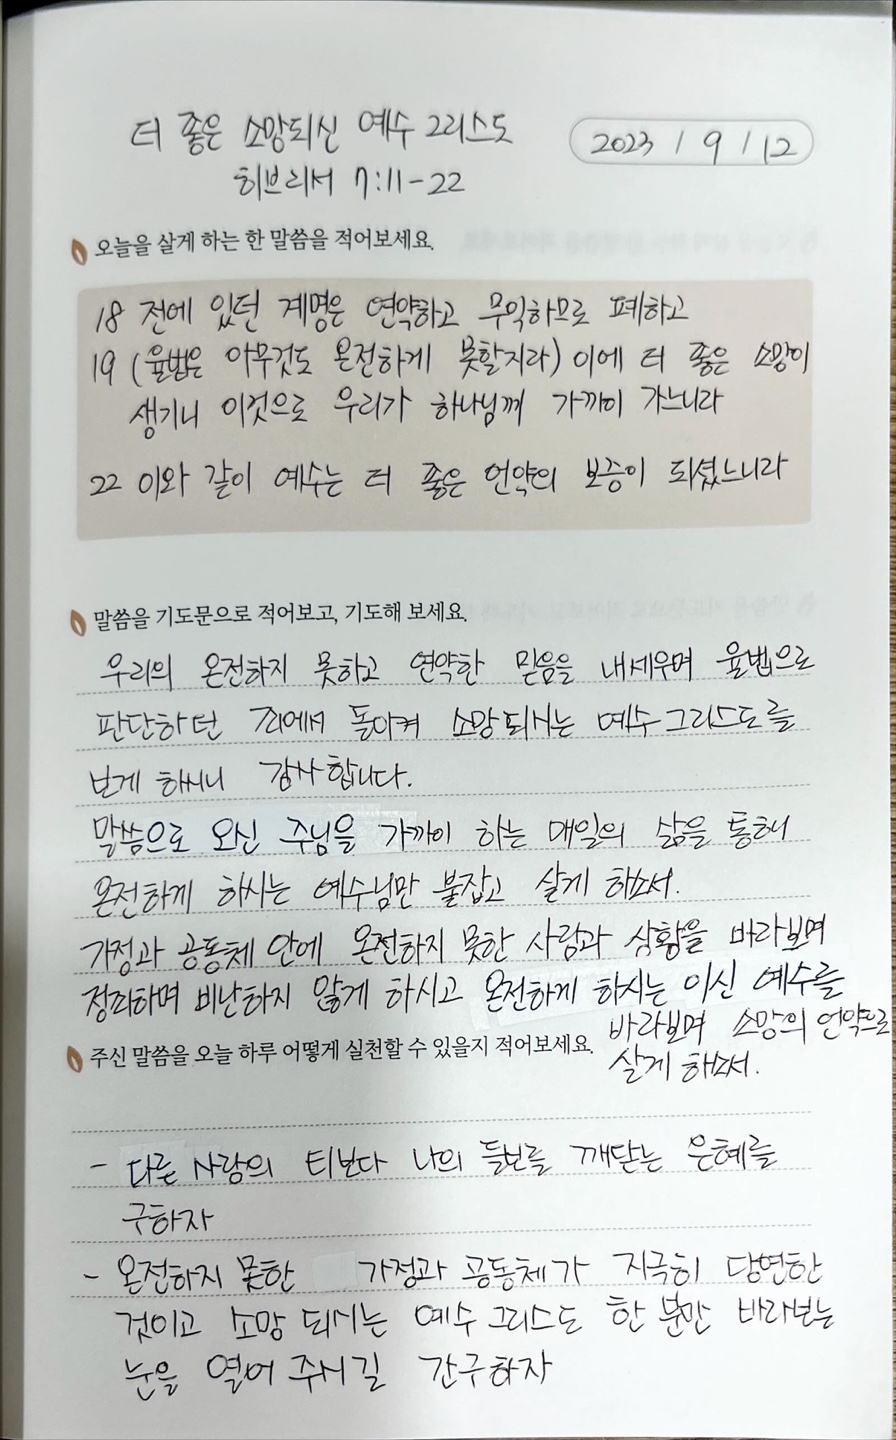 더 좋은 소망되신 예수 그리스도
2023 / 9 / 12
히브리서 7:11-22
오늘을 살게 하는 한 말씀을 적어보세요.
18 전에 있던 계명은 연약하고 무익하므로 폐하고
19 (율법은 아무것도 온전하게 못할지라) 이에 더 좋은 소망이
생기니 이것으로 우리가 하나님께 가까이 가느니라
22 이와 같이 예수는 더 좋은 언약의 보증이 되셨느니라
말씀을 기도문으로 적어보고, 기도해 보세요.
우리의 온전하지 못하고 연약한 믿음을 내세우며 율법으로
판단하던 죄에서 돌이켜 소망되시는 예수그리스도를
보게 하시니 감사합니다.
말씀으로 오신 주님을 가까이 하는 매일의 삶을 통해
온전하게 하시는 예수님만 붙잡고 살게 하소서.
가정과 공동체 안에 온전하지 못한 사람과 상황을 바라보며
정죄하며 비난하지 않게 하시고 온전하게 하시는 이신 예수를
바라보며 소망의 언약으로
살게 하소서.
주신 말씀을 오늘 하루 어떻게 실천할 수 있을지 적어보세요.
- 다른 사람의 티보다 나의 들보를 깨닫는 은혜를
구하자
- 온전하지 못한 가정과 공동체가 지극히 당연한
것이고 소망 되시는 예수 그리스도 한 분만 바라보는
눈을 열어 주시길 간구하자